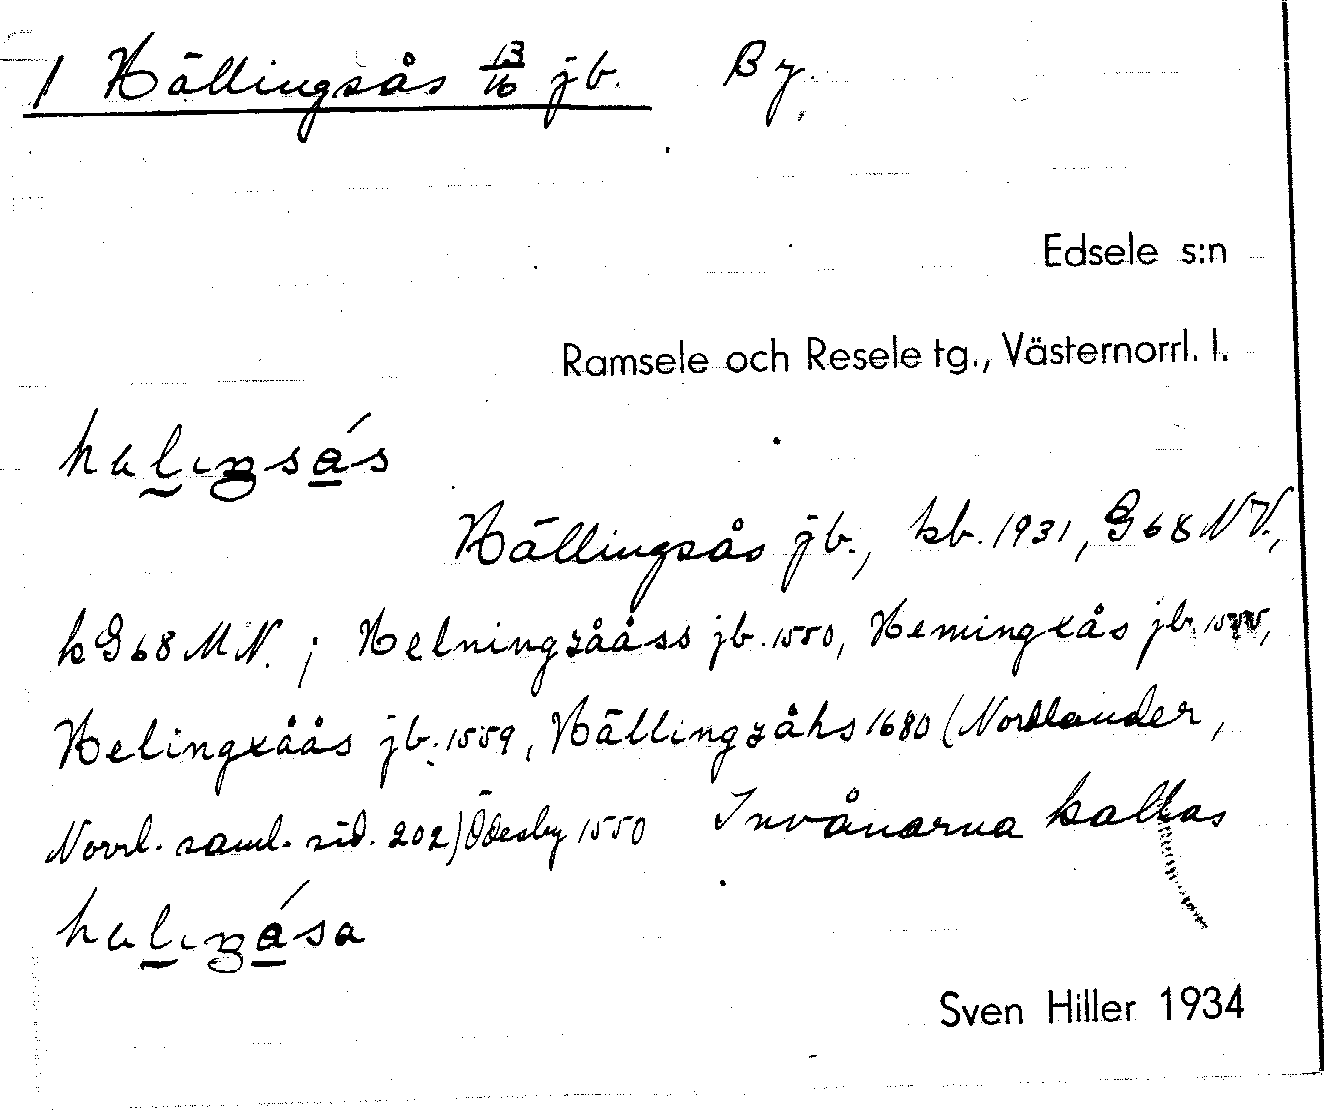 1 Hällingsås 13/16 jb. By.
Edsele s:n
Ramsele och Resele tg., Västernorrl. l.
halıŋsás
Hällingsås jb., kb. 1931, G 68 NV.,
kG 68 M N. ; Helningzååss jb. 1550, Hemingxås jb.
Helingxåås jb. 1559, Hällingzåhs 1680 (Nordlander,
Norrl. saml. sid. 202) Ödesby 1550 Invånarna kallas
halıŋása
Sven Hiller 1934